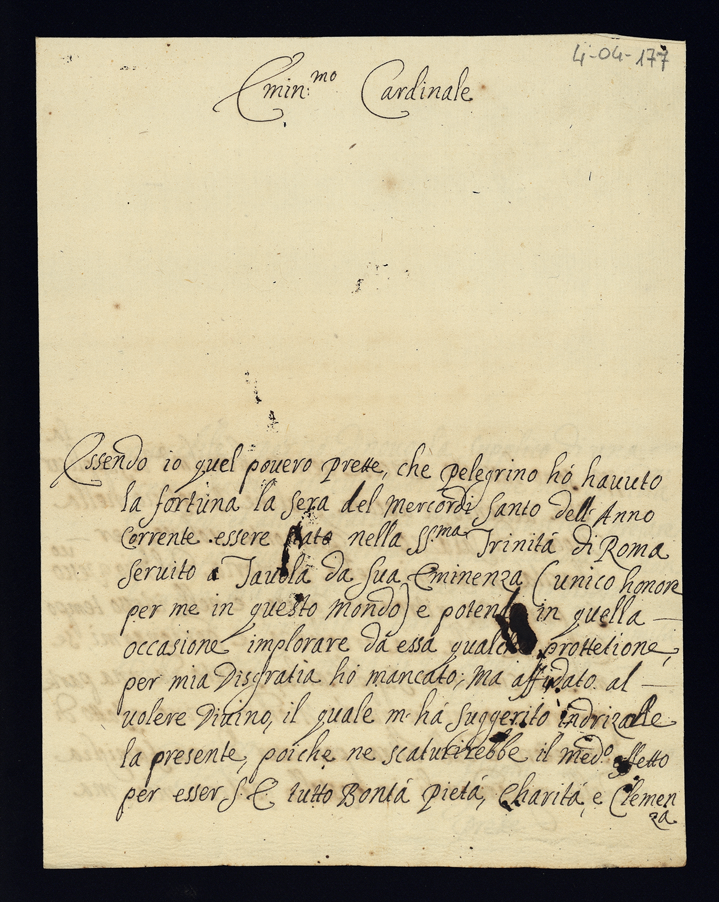 4-04-177
Emin:mo Cardinale
Essendo io quel povero prette, che pelegrino hó havuto
la fortuna la sera del Mercordi Santo dell'Anno
Corrente essere stato nella SSma Trinitá di Roma
servito á Tavola da Sua Eminenza (unico honore
per me in questo Mondo) e potendo in quella —
occasione implorare da essa qualche prottetione,
per mia Disgratia hó mancato; Ma affidato al —
volere Divino, il quale m'há suggerito indrizarle
la presente, poiche ne scaturirebbe il medo. effetto
per esser S. E. tutto Bontá Pietá, Charitá, e Clemen
za